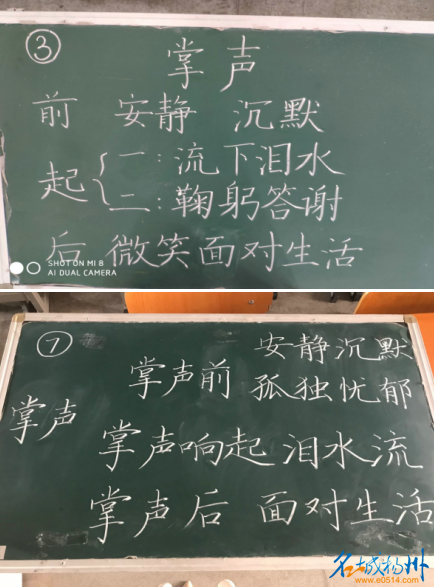 ③
掌声
前 安静 沉默
起{一:流下泪水
二:鞠躬答谢
后 微笑面对生活
SHOT ON MI 8
AI DUAL CAMERA
⑦
安静沉默
掌声前 孤独忧郁
掌声
掌声响起 泪水流
掌声后 面对生活
名城扬州
www.e0514.com